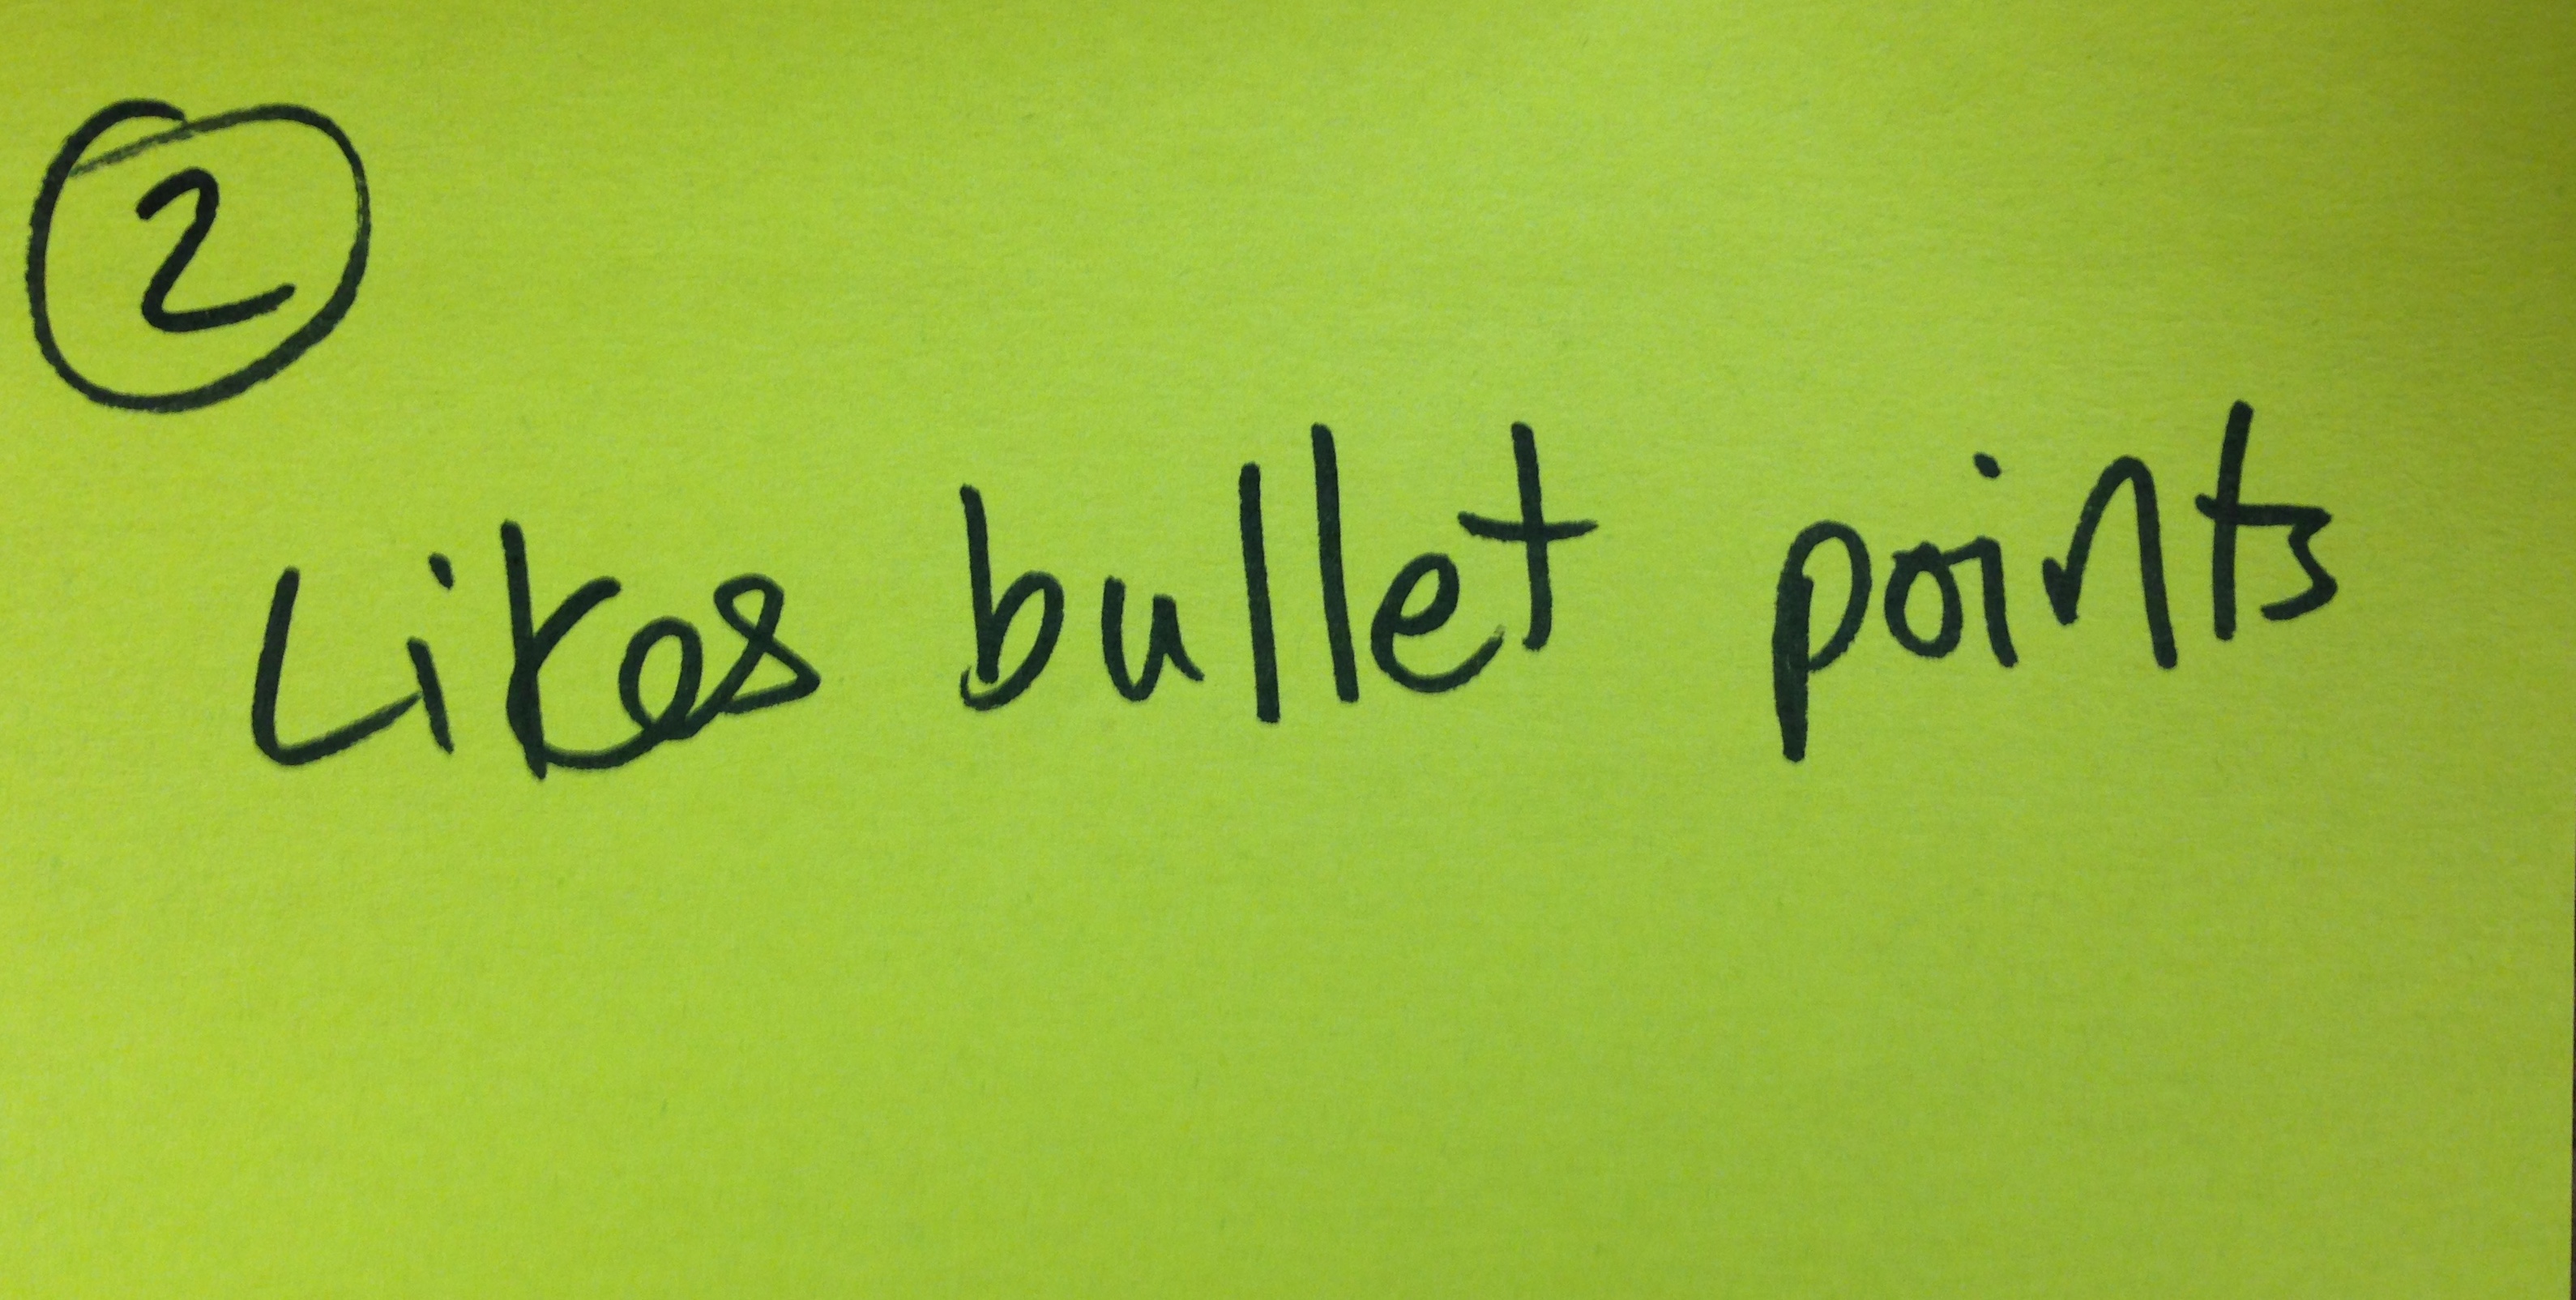 2
Likes bullet points